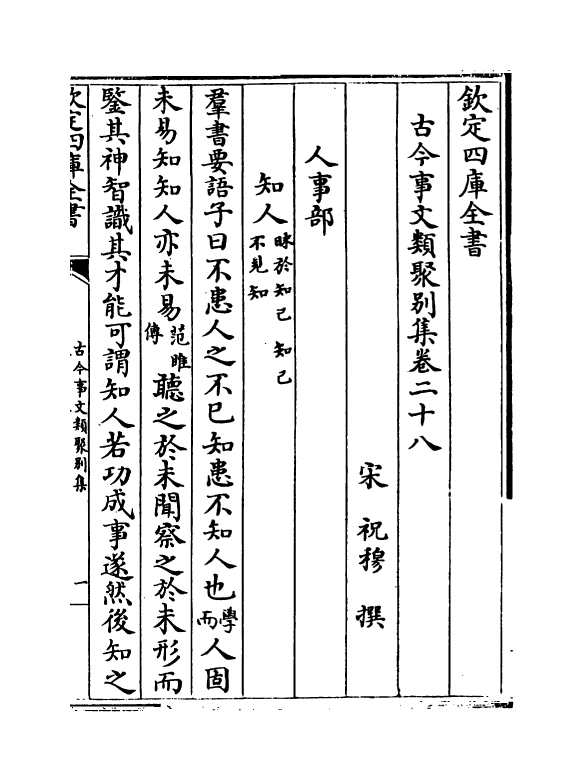 欽定四庫全書
古今事文類聚別集卷二十八
宋 祝穆 撰
人事部
知人 昧於知己 知己 不見知
羣書要語子曰不患人之不巳知患不知人也學而人固
未易知知人亦未易范雎傳聽之於未聞察之於未形而
鍳其神智識其才能可謂知人若功成事遂然後知之
欽定四庫全書
古今事文類聚別集
一